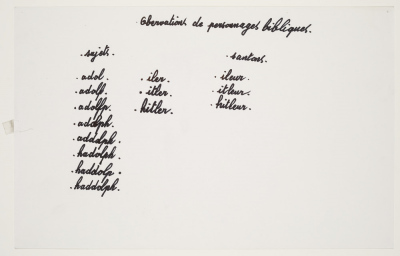 . Obervations de personnages bibliques.
. sujets. . santons.
. adol. . iler. . ileur.
. adolf. . itler. . itleur.
. adolfp. . hitler. . hitleur.
. adolph.
. addolph.
. hadolph.
. haddolp.
. haddolph.